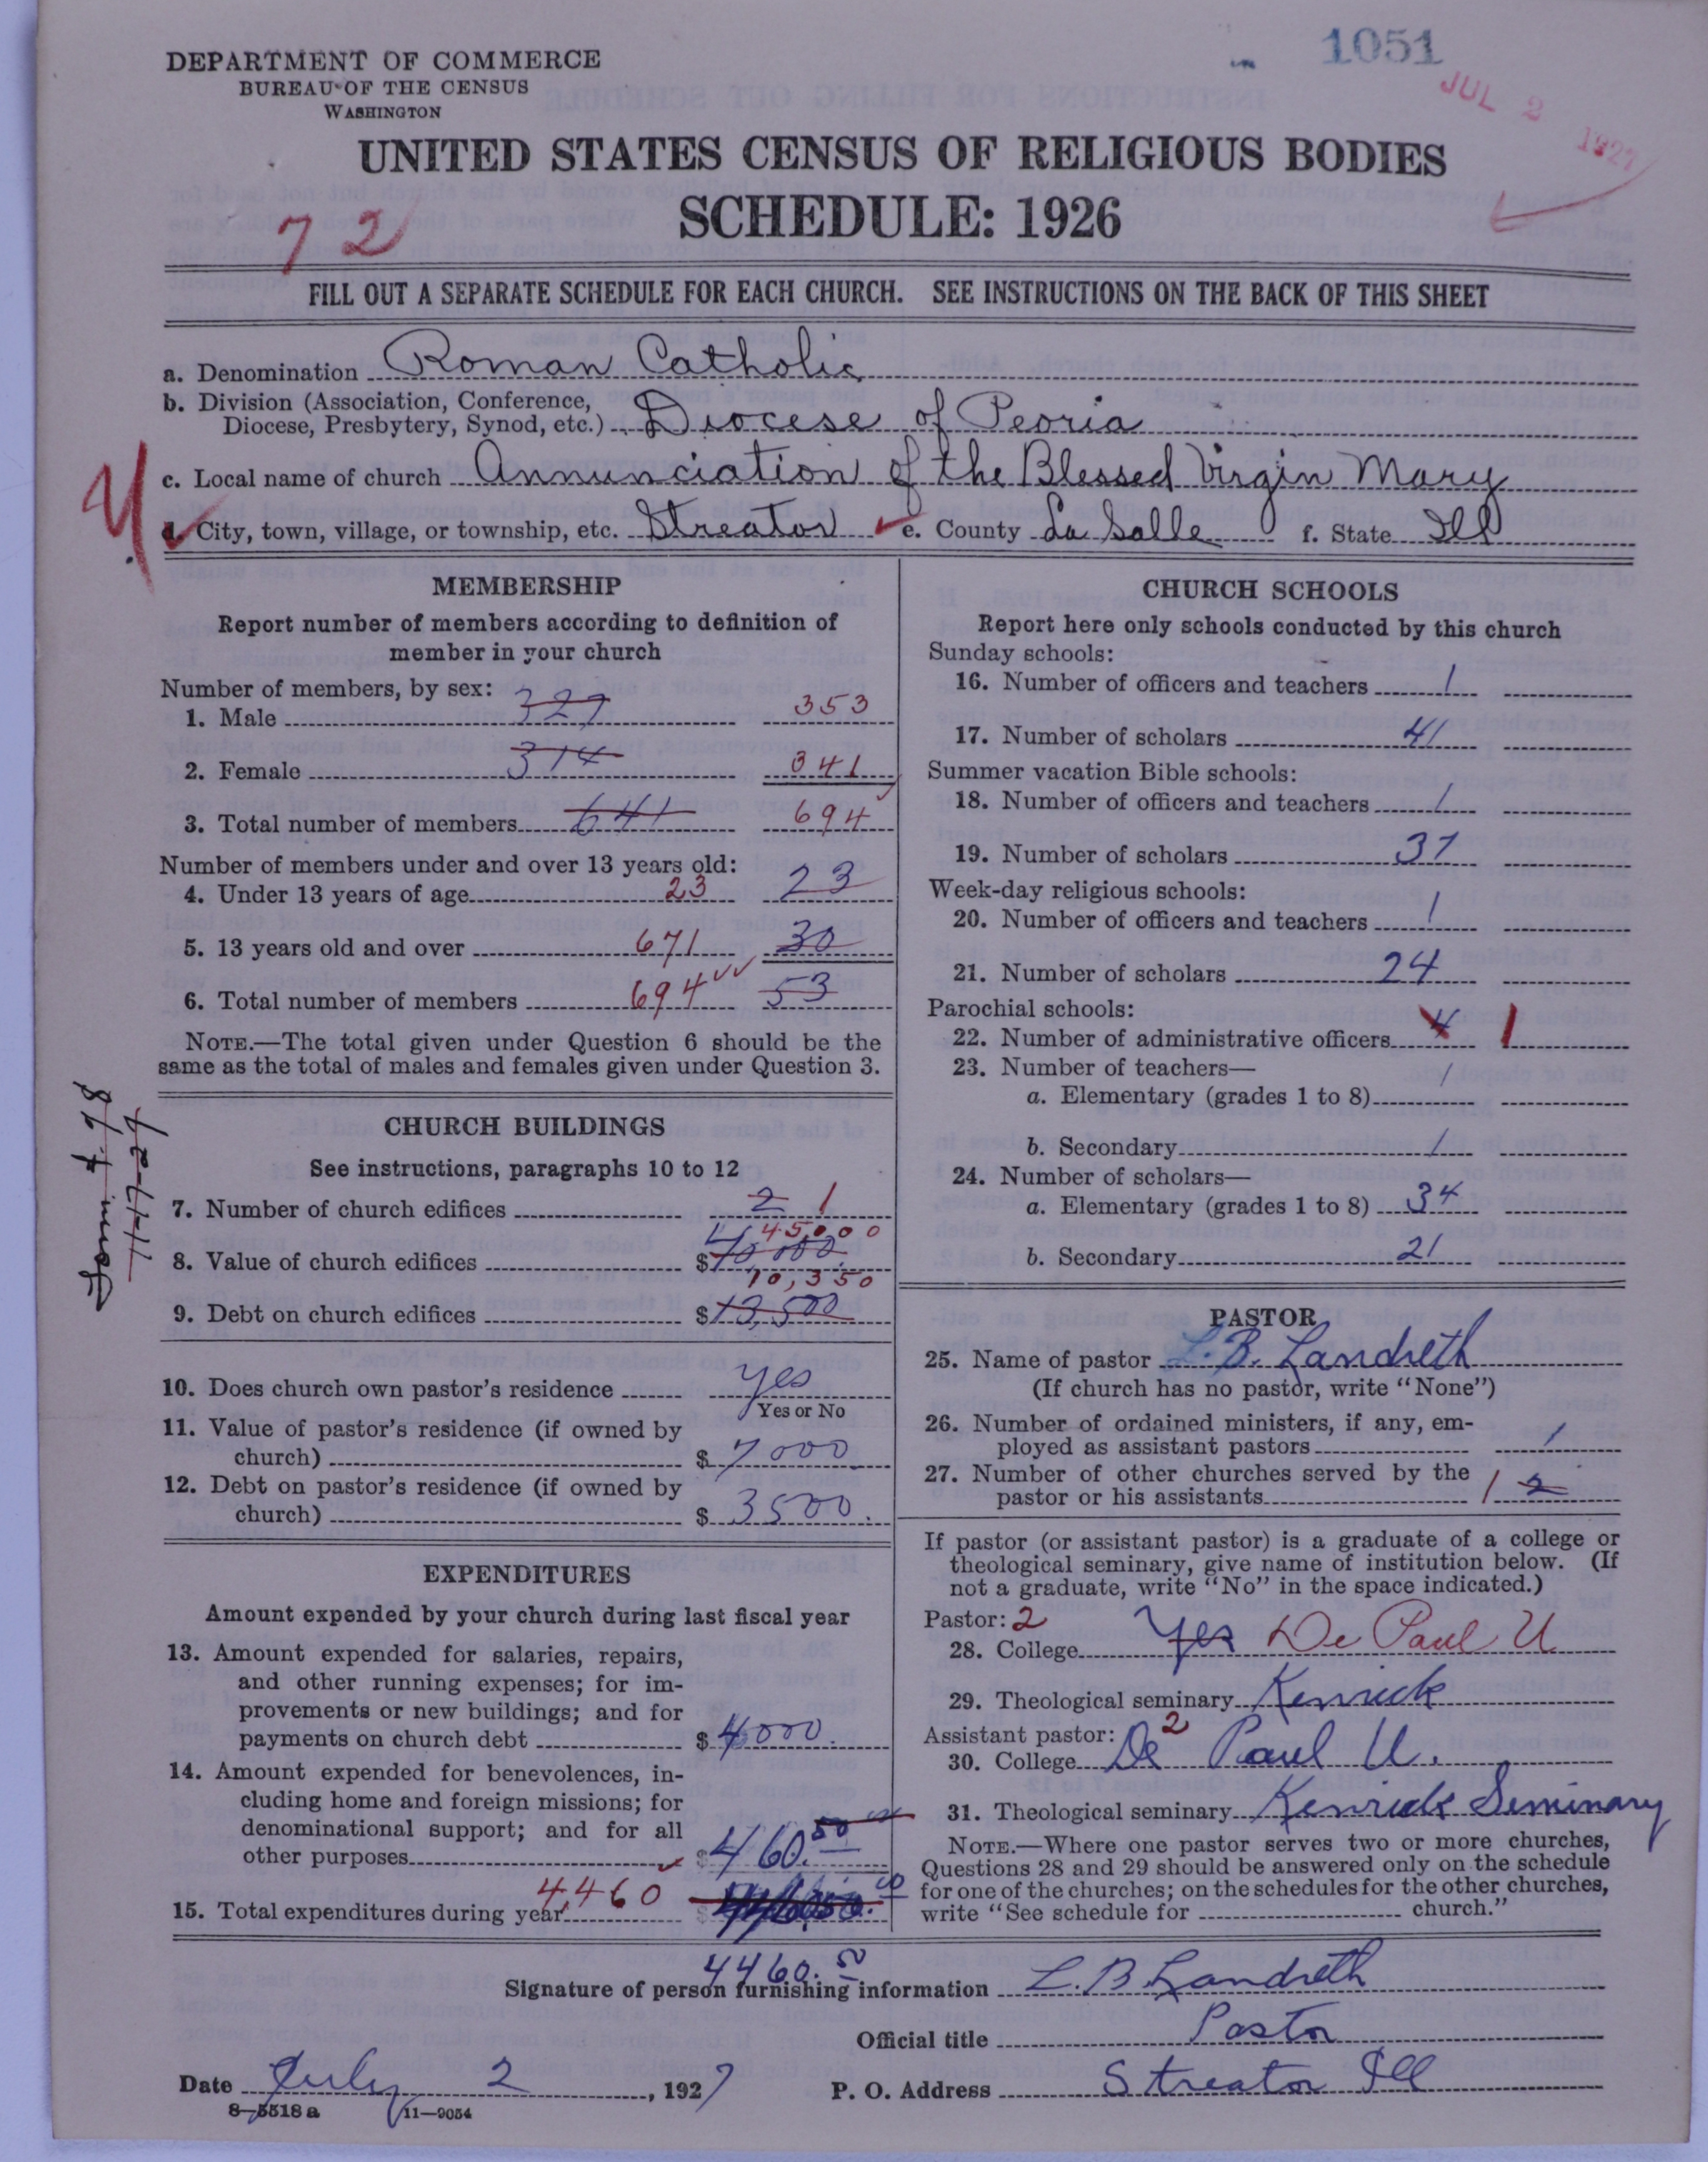 1051
JUL 2 1927
DEPARTMENT OF COMMERCE
BUREAU OF THE CENSUS
WASHINGTON
UNITED STATES CENSUS OF RELIGIOUS BODIES
SCHEDULE: 1926
72
FILL OUT A SEPARATE SCHEDULE FOR EACH CHURCH. SEE INSTRUCTIONS ON THE BACK OF THIS SHEET
a. Denomination Roman Catholic
b. Division (Association, Conference,
Diocese, Presbytery, Synod, etc.) Diocese of Peoria
c. Local name of church Annunciation of the Blessed Virgin Mary
d. City, town, village, or township, etc. Streator e. County La Salle f. State Ill
MEMBERSHIP
Report number of members according to definition of
member in your church
Number of members, by sex:
1. Male 327 353
2. Female 314 341
3. Total number of members 641 694
Number of members under and over 13 years old:
4. Under 13 years of age 23 23
5. 13 years old and over 671 30
6. Total number of members 694 53
NOTE.—The total given under Question 6 should be the
same as the total of males and females given under Question 3.
CHURCH BUILDINGS
See instructions, paragraphs 10 to 12
7. Number of church edifices 2 1
45000
8. Value of church edifices $40,000.
10,350
9. Debt on church edifices $13,500
10. Does church own pastor's residence yes
Yes or No
11. Value of pastor's residence (if owned by
church) $7000.
12. Debt on pastor's residence (if owned by
church) $3500.
EXPENDITURES
Amount expended by your church during last fiscal year
13. Amount expended for salaries, repairs,
and other running expenses; for im-
provements or new buildings; and for
payments on church debt $4000.
14. Amount expended for benevolences, in-
cluding home and foreign missions; for
denominational support; and for all
other purposes $460.50
15. Total expenditures during year 4,460 $
4460.50
CHURCH SCHOOLS
Report here only schools conducted by this church
Sunday schools:
16. Number of officers and teachers 1
17. Number of scholars 41
Summer vacation Bible schools:
18. Number of officers and teachers 1
19. Number of scholars 37
Week-day religious schools:
20. Number of officers and teachers 1
21. Number of scholars 24
Parochial schools:
22. Number of administrative officers 4 1
23. Number of teachers—
a. Elementary (grades 1 to 8) 1
b. Secondary 1
24. Number of scholars—
a. Elementary (grades 1 to 8) 34
b. Secondary 21
PASTOR
25. Name of pastor L. B. Landreth
(If church has no pastor, write "None")
26. Number of ordained ministers, if any, em-
ployed as assistant pastors 1
27. Number of other churches served by the
pastor or his assistants 1 2
If pastor (or assistant pastor) is a graduate of a college or
theological seminary, give name of institution below. (If
not a graduate, write "No" in the space indicated.)
Pastor: 2
28. College Yes De Paul U
29. Theological seminary Kenrick
Assistant pastor: 2
30. College De Paul U.
31. Theological seminary Kenrick Seminary
NOTE.—Where one pastor serves two or more churches,
Questions 28 and 29 should be answered only on the schedule
for one of the churches; on the schedules for the other churches,
write "See schedule for church."
Signature of person furnishing information L. B Landreth
Official title Pastor
Date July 2, 1927 P. O. Address Streator Ill
8—5518 a 11—9054